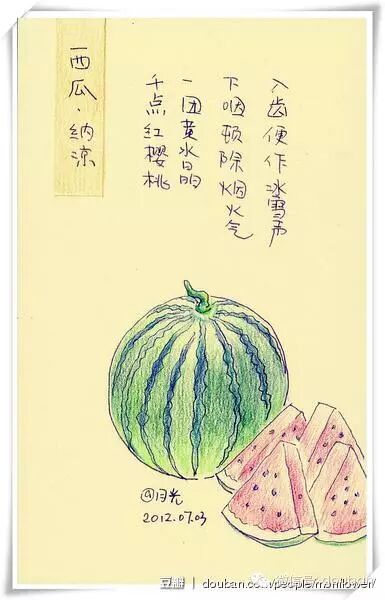 西瓜·纳凉
千点红樱桃
一团黄水晶
下咽顿除烟火气
入齿便作冰雪声
@月光
2012.07.03
豆瓣 douban.com/people/
微信号: